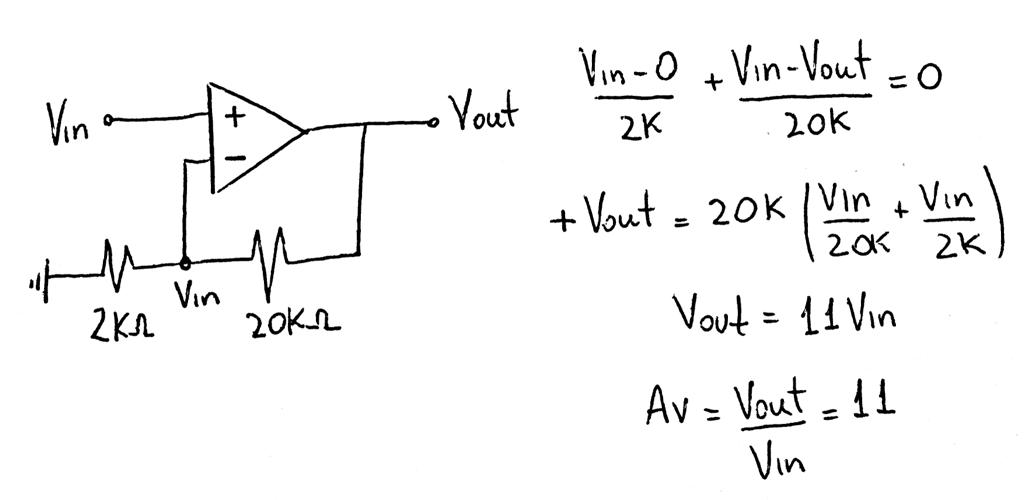 Vin
+
-
Vout
Vin
2KΩ
20KΩ
Vin-0 / 2K + Vin-Vout / 20K = 0
+Vout = 20K (Vin / 20K + Vin / 2K)
Vout = 11Vin
Av = Vout / Vin = 11